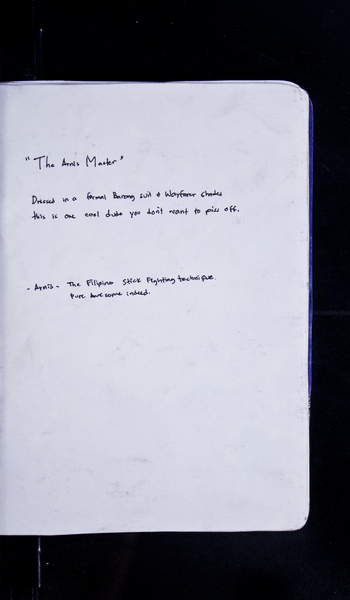 "The Arnis Master"
Dressed in a formal Barong suit & Wayfarer shades
this is one cool dude you don't want to piss off.
- Arnis - The Filipino Stick Fighting technique.
Pure Awesome indeed.